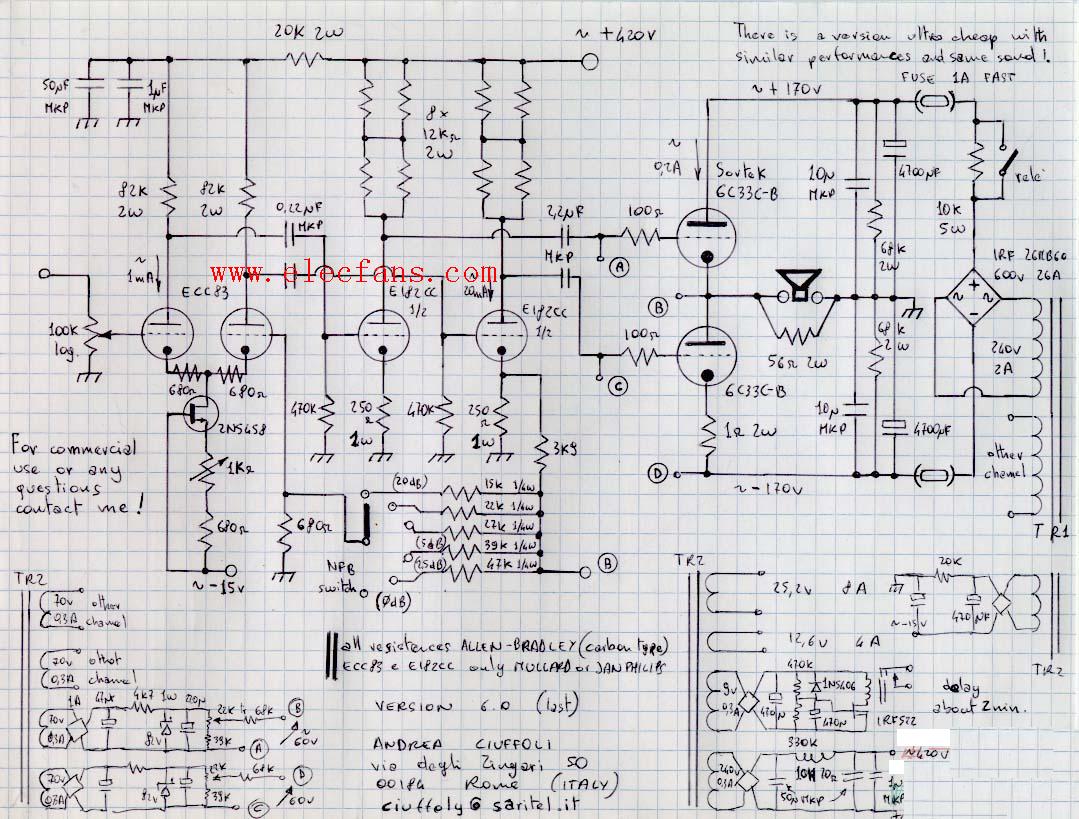 20K 2W
~ +420V
There is a version ultra cheap with
similar performances and same sound!
FUSE 1A FAST
50µF
MKP
1µF
MKP
8×
12KΩ
2W
~ +170V
~
0,2A
Sovtek
6C33C-B
10µ
MKP
4700µF
rele'
10K
5W
82K
2W
82K
2W
0,22µF
MKP
2,2µF
MKP
100Ω
A
68K
2W
IRF 26MB60
600V 26A
~
1mA
www.elecfans.com
ECC83
E182CC
1/2
~
20mA
E182CC
1/2
B
100K
log.
100Ω
C
6C33C-B
56Ω 2W
68K
2W
240V
2A
680Ω
680Ω
2N5458
470K
250
Ω
1W
470K
250
Ω
1W
3K9
1Ω 2W
10µ
MKP
4700µF
other
channel
For commercial
use or any
questions
contact me!
1KΩ
680Ω
680Ω
D
~ -170V
TR1
(20dB)
15K 1/4W
22K 1/4W
27K 1/4W
(5dB)
39K 1/4W
47K 1/4W
NFB
switch
(0dB)
B
~ -15V
TR2
70V
0,3A
other
channel
70V
0,3A
channel
TR2
25,2V 8A
12,6V 4A
20K
~-15V
TR2
all resistences ALLEN-BRADLEY (carbon type)
ECC83 e E182CC only MULLARD or JAN PHILIPS
1A
4K7 1W
70V
0,3A
82V
22K
68K
39K
B
A
~
60V
70V
82V
39K
D
C
~
60V
VERSION 6.0 (last)
ANDREA CIUFFOLI
via degli Zingari 50
00184 Rome (ITALY)
ciuffoly@saritel.it
9V
0,3A
470K
1N5406
IRF522
delay
about 2min.
240V
0,3A
330K
50µ MKP
~420V
MKP